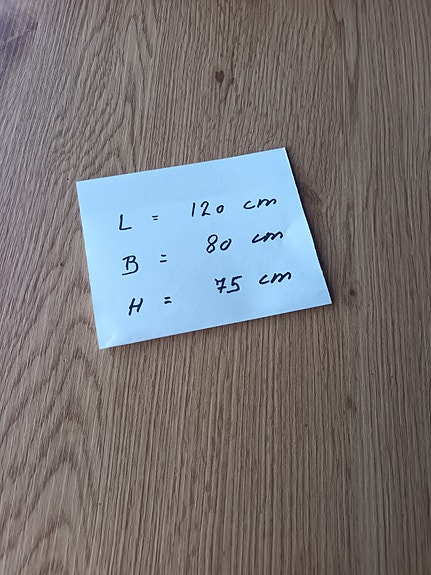 L = 120 cm
B = 80 cm
H = 75 cm